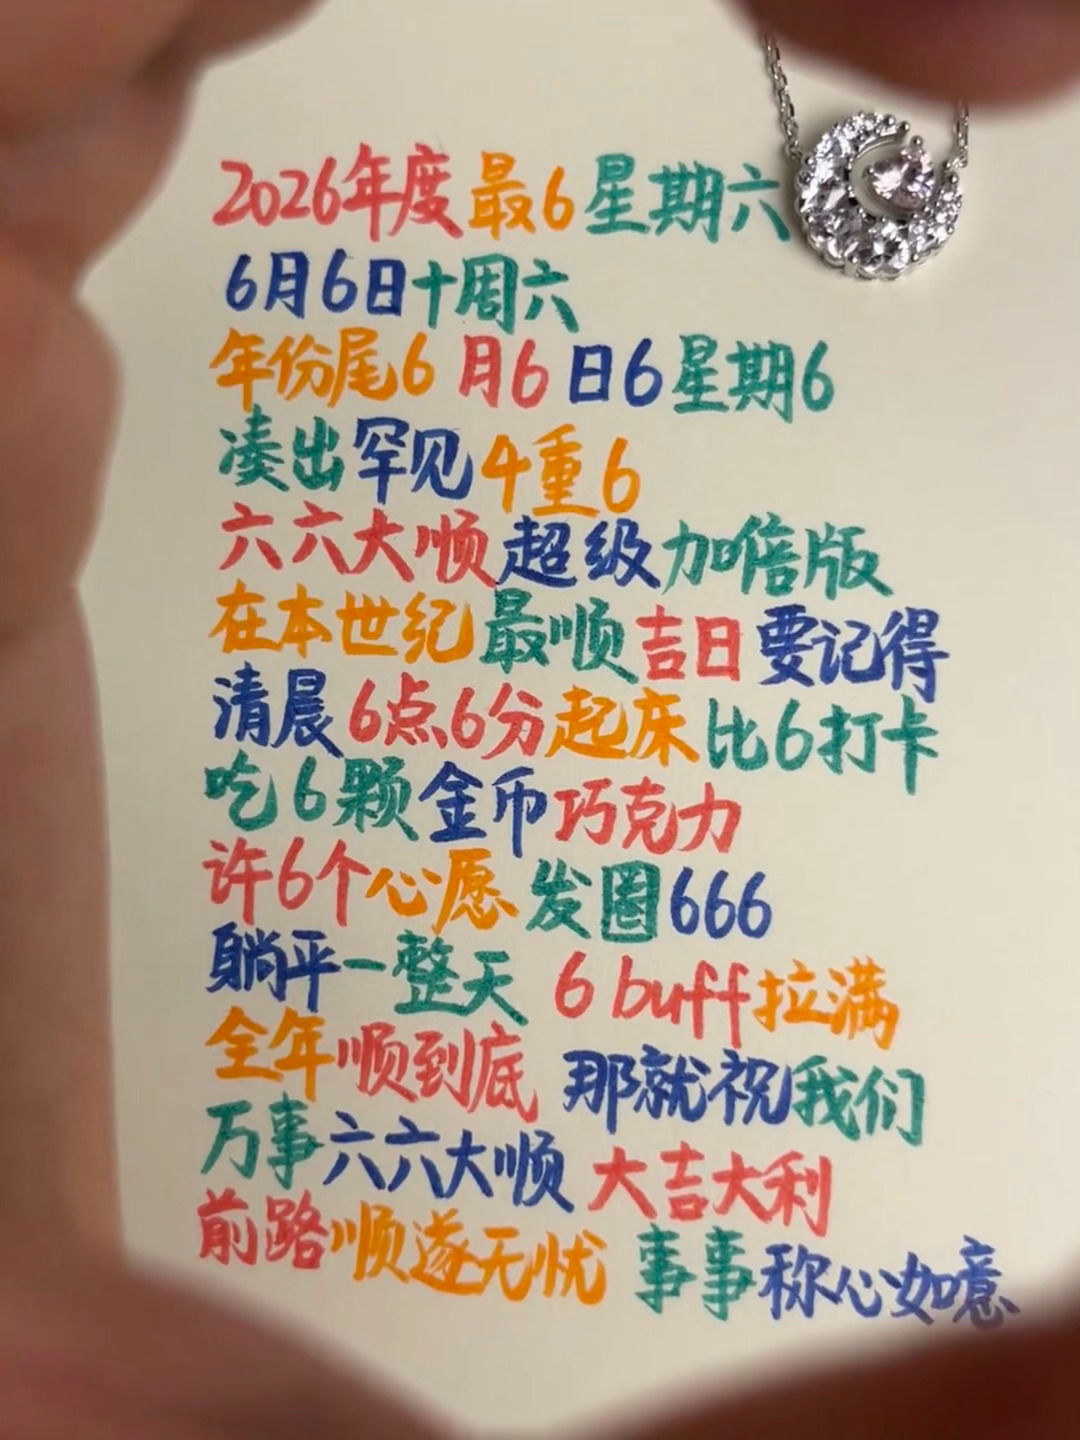 2026年度最6星期六
6月6日十周六
年份尾6 月6 日6 星期6
凑出罕见4重6
六六大顺超级加倍版
在本世纪最顺吉日要记得
清晨6点6分起床比6打卡
吃6颗金币巧克力
许6个心愿 发圈666
躺平一整天 6 buff拉满
全年顺到底 那就祝我们
万事六六大顺 大吉大利
前路顺遂无忧 事事称心如意